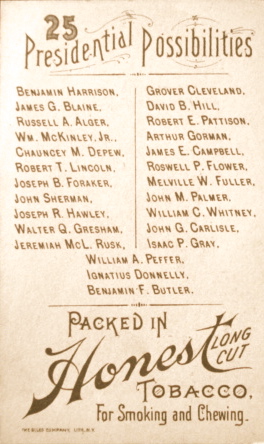 25
Presidential Possibilities
BENJAMIN HARRISON,
JAMES G. BLAINE,
RUSSELL A. ALGER,
WM. MCKINLEY, JR.,
CHAUNCEY M. DEPEW,
ROBERT T. LINCOLN,
JOSEPH B. FORAKER,
JOHN SHERMAN,
JOSEPH R. HAWLEY,
WALTER Q. GRESHAM,
JEREMIAH MCL. RUSK,
GROVER CLEVELAND,
DAVID B. HILL,
ROBERT E. PATTISON,
ARTHUR GORMAN,
JAMES E. CAMPBELL,
ROSWELL P. FLOWER,
MELVILLE W. FULLER,
JOHN M. PALMER,
WILLIAM C. WHITNEY,
JOHN G. CARLISLE,
ISAAC P. GRAY,
WILLIAM A. PEFFER,
IGNATIUS DONNELLY,
BENJAMIN F. BUTLER.
PACKED IN
Honest LONG CUT
TOBACCO,
For Smoking and Chewing.